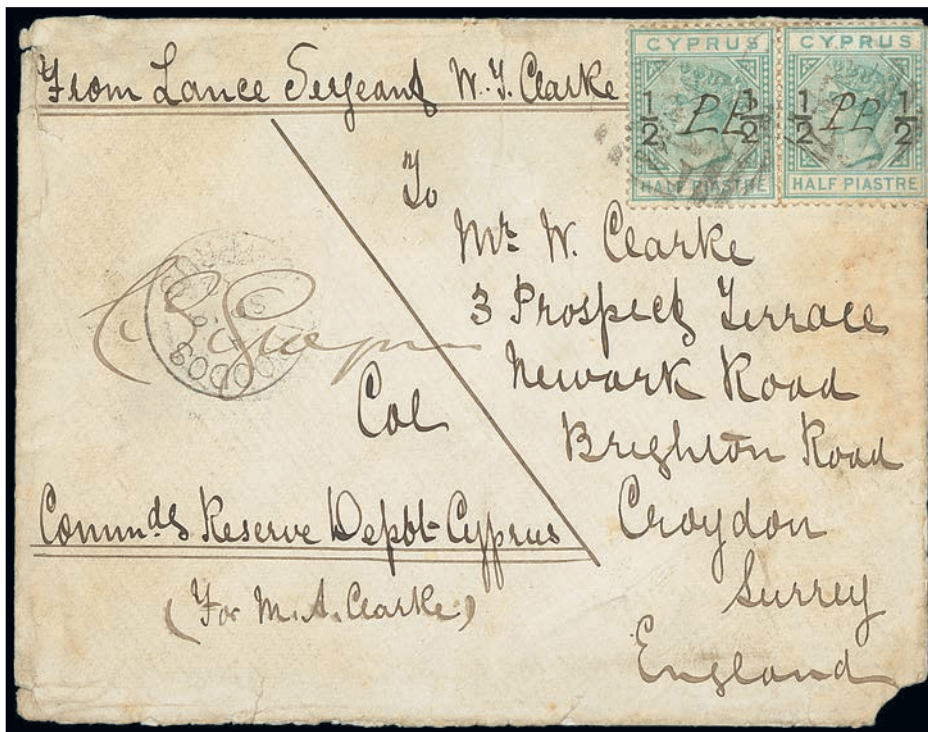 From Lance Sergeant W. J. Clarke
CYPRUS
1/2 PP 1/2
HALF PIASTRE
CYPRUS
1/2 PP 1/2
HALF PIASTRE
To
Mr W. Clarke
3 Prospect Terrace
Newark Road
Brighton Road
Croydon
Surrey
England
Col
Commdg Reserve Depôt Cyprus
(For M. A. Clarke)